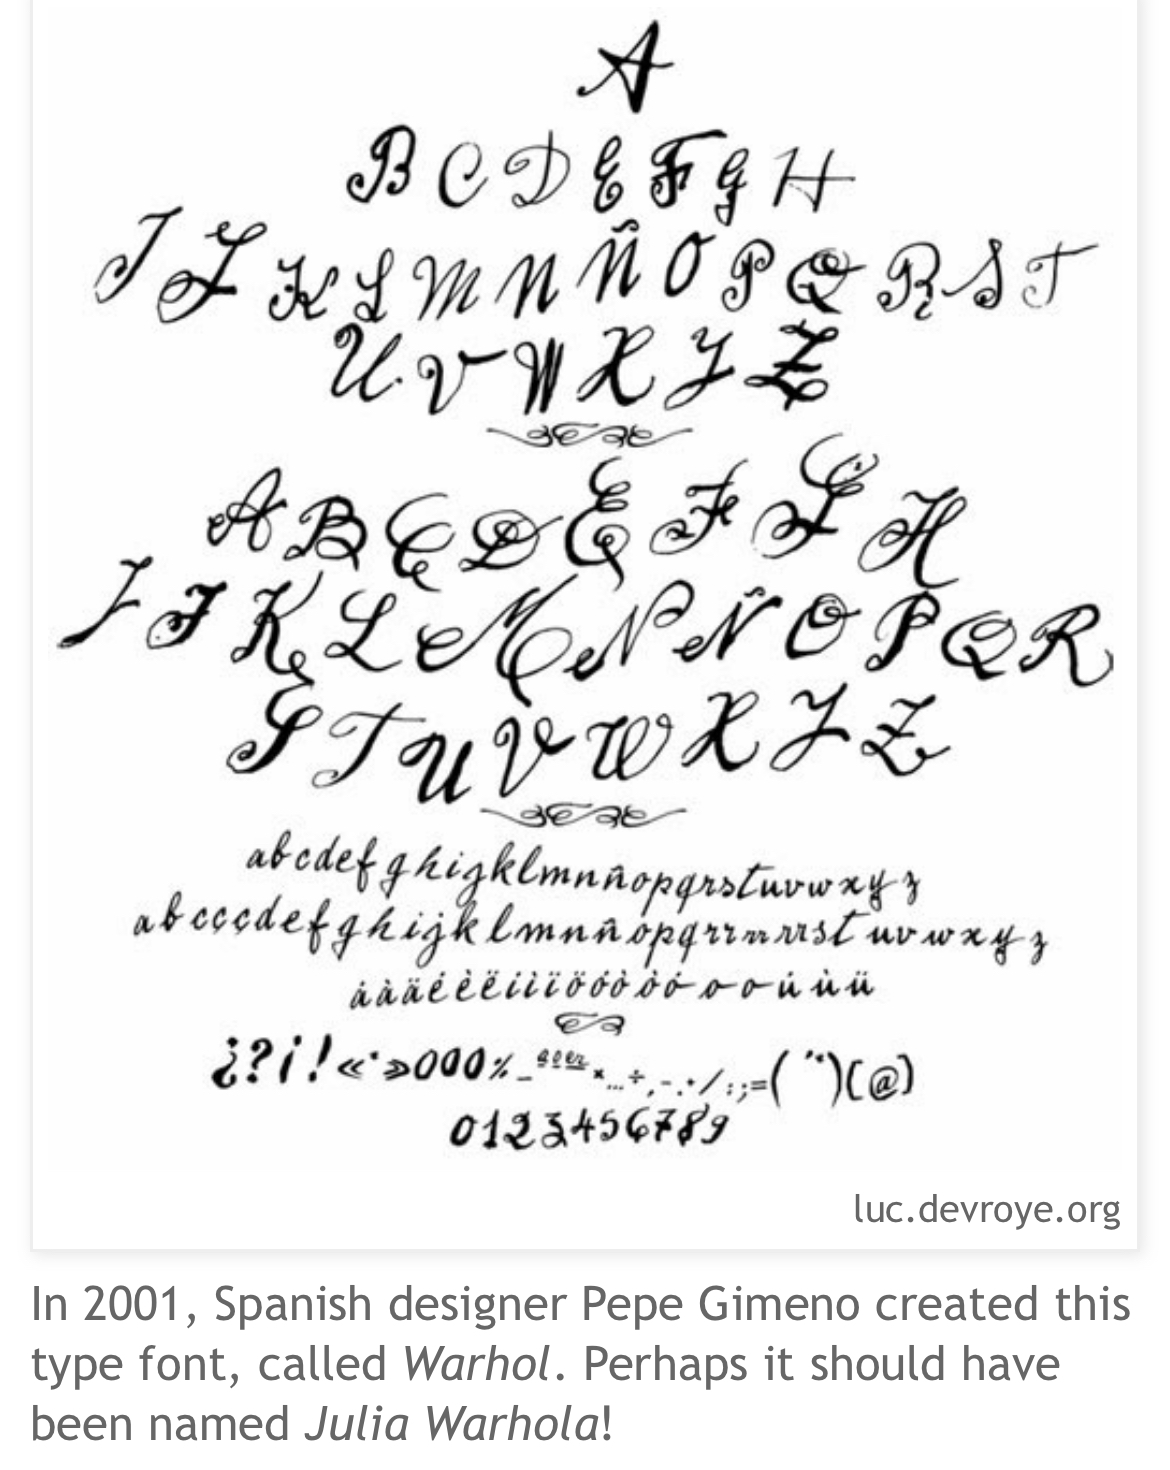 A
B C D E F G H
I J K L M N Ñ O P Q R S T
U V W X Y Z
A B C D E F G H
I J K L M N Ñ O P Q R
S T U V W X Y Z
abcdefghijklmnñopqrstuvwxyz
abccçdefghijklmnñopqrrrrrrstuvwxyz
áàäéèëíìïöóòòóooúùü
¿?¡!«·»000%_
...÷,-.·/:;=(¨)(@)
0123456789
luc.devroye.org
In 2001, Spanish designer Pepe Gimeno created this
type font, called Warhol. Perhaps it should have
been named Julia Warhola!